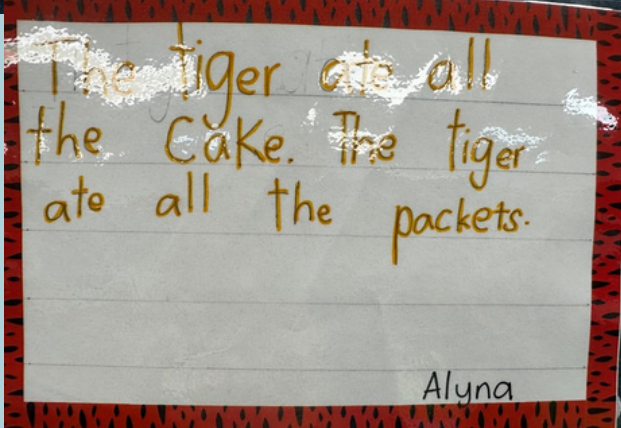 The tiger ate all
the Cake. The tiger
ate all the packets.
Alyna